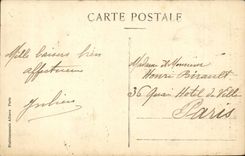 CARTE POSTALE
Mille baisers bien
affectueux
Madame & Monsieur
Henri Bérault
36 Quai Hotel de Ville
Paris